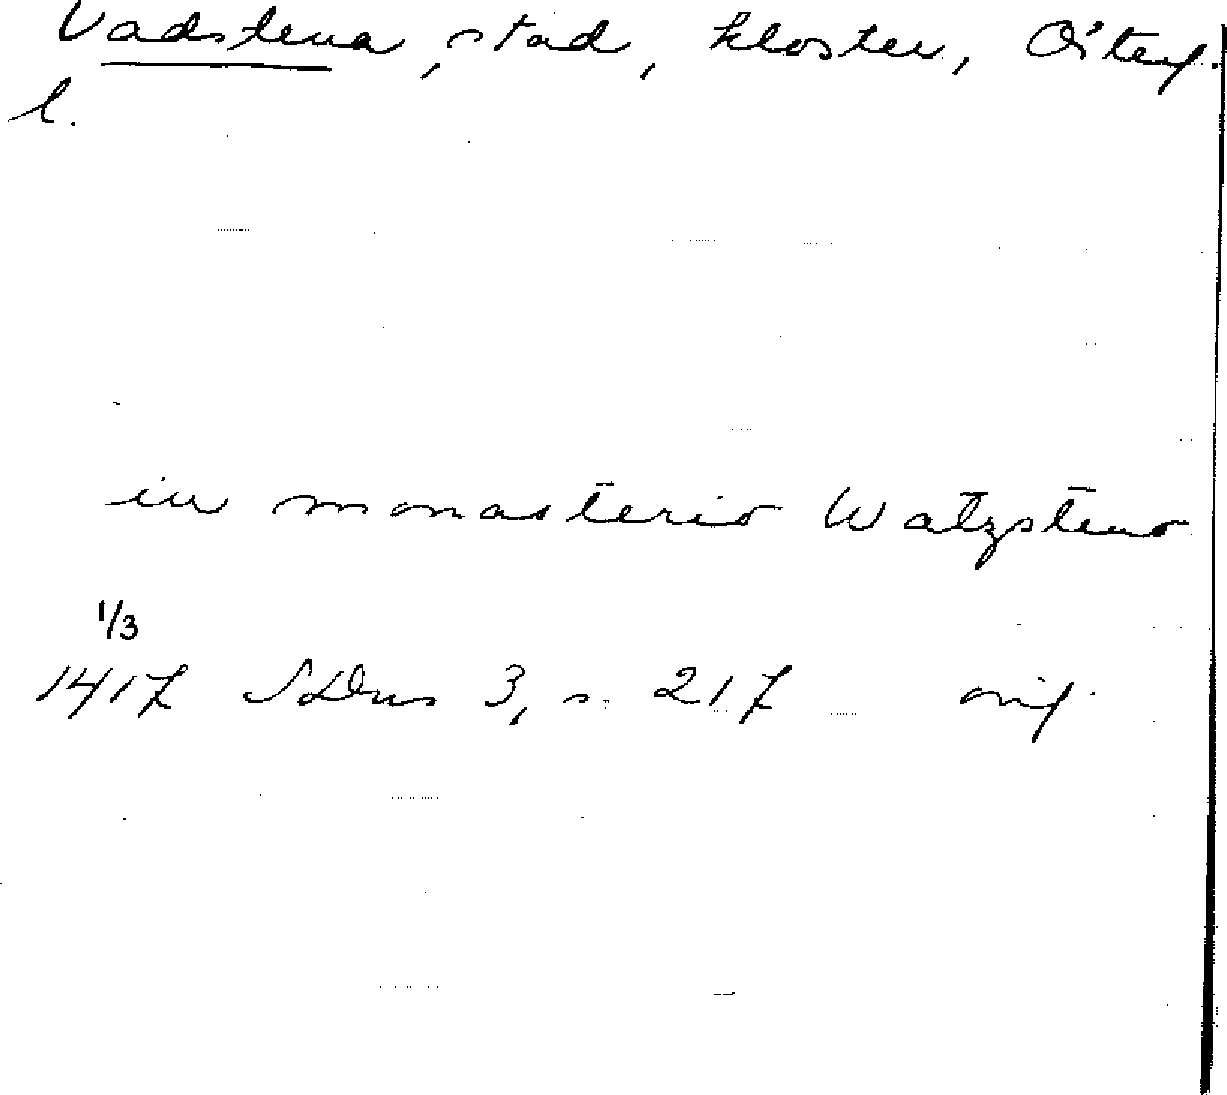 Vadstena, stad, kloster, Österg.
l.
in monasterio Watzsteno
1/3
1417 SDns 3, s. 217 orig.